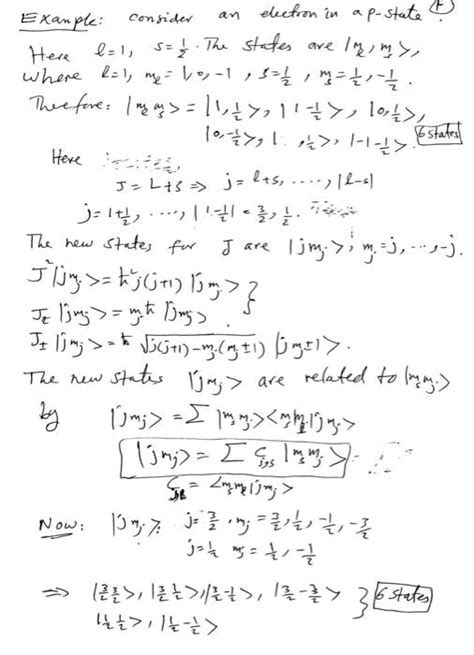 Example: consider an electron in a p-state
Here l=1, s=1/2. The states are |m_l, m_s>,
where l=1, m_l=1,0,-1, s=1/2, m_s=1/2,-1/2.
Therefore: |m_l m_s> = |1,1/2>, |1-1/2>, |0,1/2>,
|0,-1/2>, | ,1/2>, |-1-1/2>. 6 states
Here
J=L+S ⇒ j=l+s, ....., |l-s|
j=1+1/2, ....., |1-1/2| = 3/2, 1/2.
The new states for J are |jm_j>, m_j=j, ..., -j.
J²|jm_j>=ħ²j(j+1)|jm_j>
J_z|jm_j>=m_jħ|jm_j>
J±|jm_j>=ħ√j(j+1)-m_j(m_j±1) |jm_j±1>.
The new states |jm_j> are related to
by |jm_j>=Σ
|jm_j>=Σ
|jm_j>
Now: |jm_j>: j=3/2, m_j=3/2,1/2,-1/2,-3/2
j=1/2 m_j=1/2,-1/2
⇒ |3/2 3/2>, |3/2 1/2>, |3/2-1/2>, |3/2-3/2> 6 states
|1/2 1/2>, |1/2-1/2>